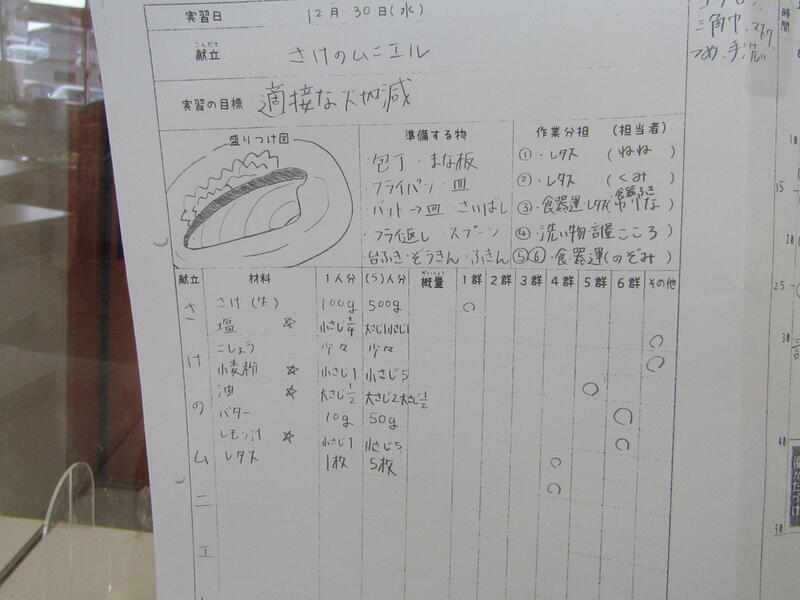 実習日 12月30日(水)
こんだて
献立 さけのムニエル
実習の目標 適接な火加減
盛りつけ図
準備する物
包丁・まな板
フライパン・皿
バット→皿・さいばし
フライ返し・スプーン
台ふき・ぞうきん・ふきん
作業分担 (担当者)
①・レタス (ねね)
②・レタス (くみ)
食器ふき
③・食器運・レタス
④・洗い物・計量 こころ)
⑤⑥・食器運(のぞみ)
献立 材料 1人分 (5)人分 概量 1群 2群 3群 4群 5群 6群 その他
がいりょう
さけのムニエ
さけ(生) 100g 500g ○
塩 ☆ 小さじ1/4
こしょう 少々 少々 ○
小麦粉 ☆ 小さじ1 小さじ5 ○
油 ☆ 大さじ1/2 大さじ2大さじ1/2 ○
バター 10g 50g ○
レモン汁 ☆ 小さじ1 小さじ5 ○
レタス 1枚 5枚 ○
○
三角巾・マスク
つめ・手洗い
時間
10
15
30
40
後かたづけ
50